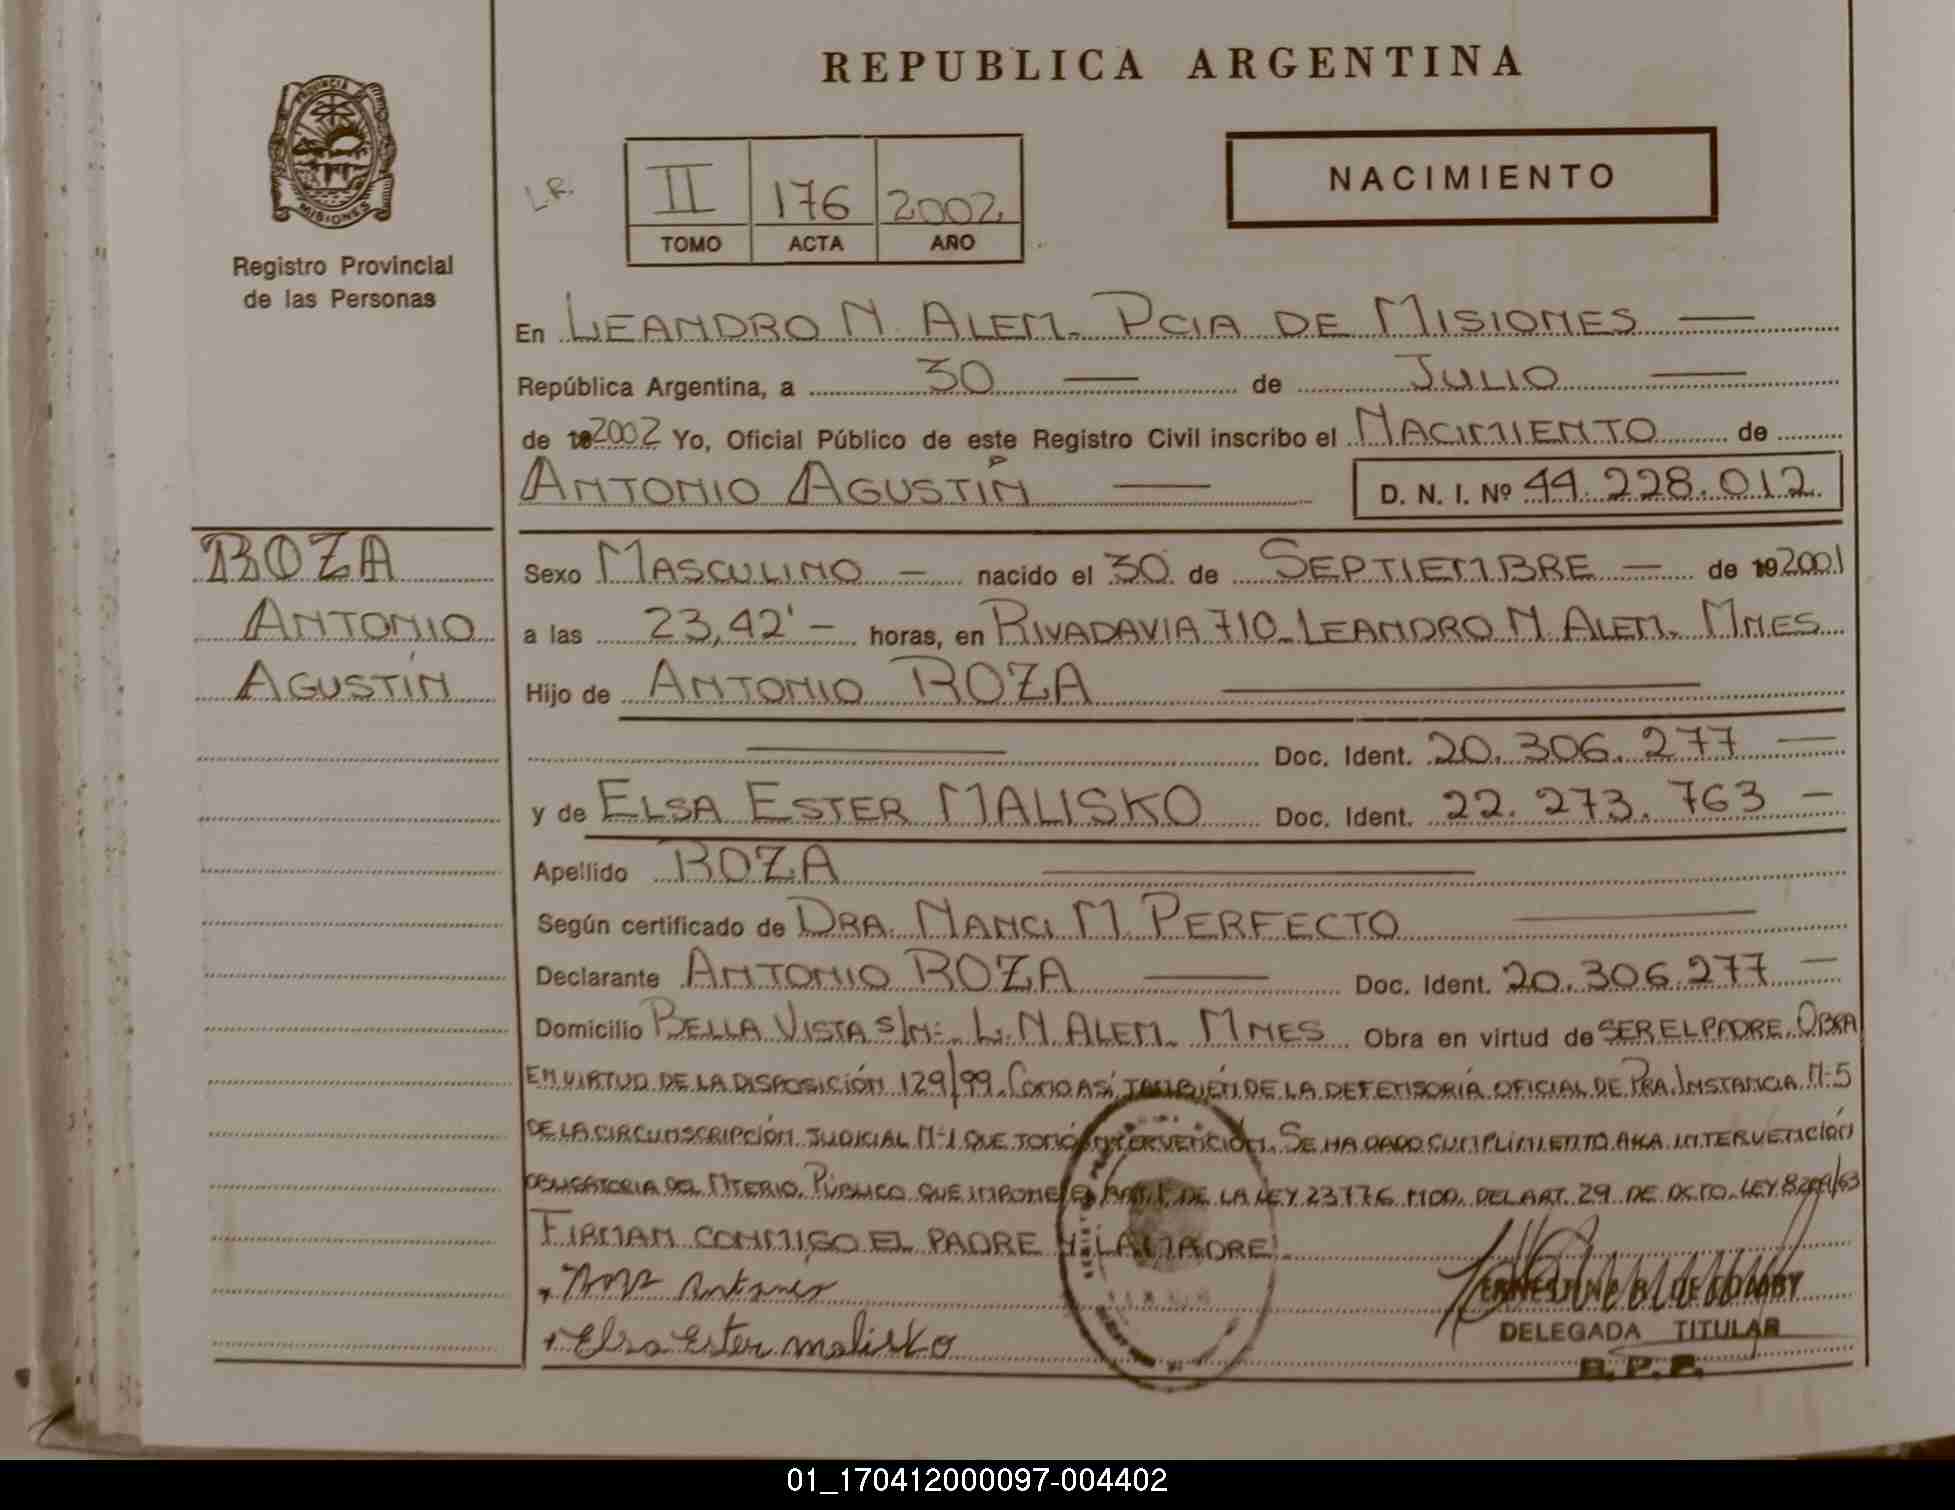 REPUBLICA ARGENTINA
PROVINCIA DE
MISIONES
Registro Provincial
de las Personas
L.R.
II 176 2002
TOMO ACTA AÑO
NACIMIENTO
En LEANDRO N. ALEM. PCIA DE MISIONES —
República Argentina, a 30 — de JULIO —
de 2002 Yo, Oficial Público de este Registro Civil inscribo el NACIMIENTO de
ANTONIO AGUSTÍN — D. N. I. Nº 44.228.012
ROZA
ANTONIO
AGUSTÍN
Sexo MASCULINO — nacido el 30 de SEPTIEMBRE — de 2001
a las 23,42' — horas, en RIVADAVIA 710. LEANDRO N. ALEM. MNES
Hijo de ANTONIO ROZA —
— Doc. Ident. 20.306.277 —
y de ELSA ESTER MALISKO Doc. Ident. 22.273.763 —
Apellido ROZA —
Según certificado de DRA. NANCI M. PERFECTO —
Declarante ANTONIO ROZA — Doc. Ident. 20.306.277 —
Domicilio BELLA VISTA S/Nº. L. N. ALEM. MNES Obra en virtud de SER EL PADRE. OBRA
EN VIRTUD DE LA DISPOSICIÓN 129/99. COMO ASÍ TAMBIÉN DE LA DEFENSORÍA OFICIAL DE PRA. INSTANCIA Nº 5
DE LA CIRCUNSCRIPCIÓN JUDICIAL Nº 1 QUE TOMÓ INTERVENCIÓN. SE HA DADO CUMPLIMIENTO A KA INTERVENCIÓN
OBLIGATORIA DEL MTERIO. PÚBLICO QUE IMPONE EL ART. 1º DE LA LEY 23776 MOD. DEL ART. 29 DE DCTO. LEY 8204/63
FIRMAN CONMIGO EL PADRE Y LA MADRE.
Elsa Ester Malisko
DELEGADA TITULAR
R. P. P.
01_170412000097-004402